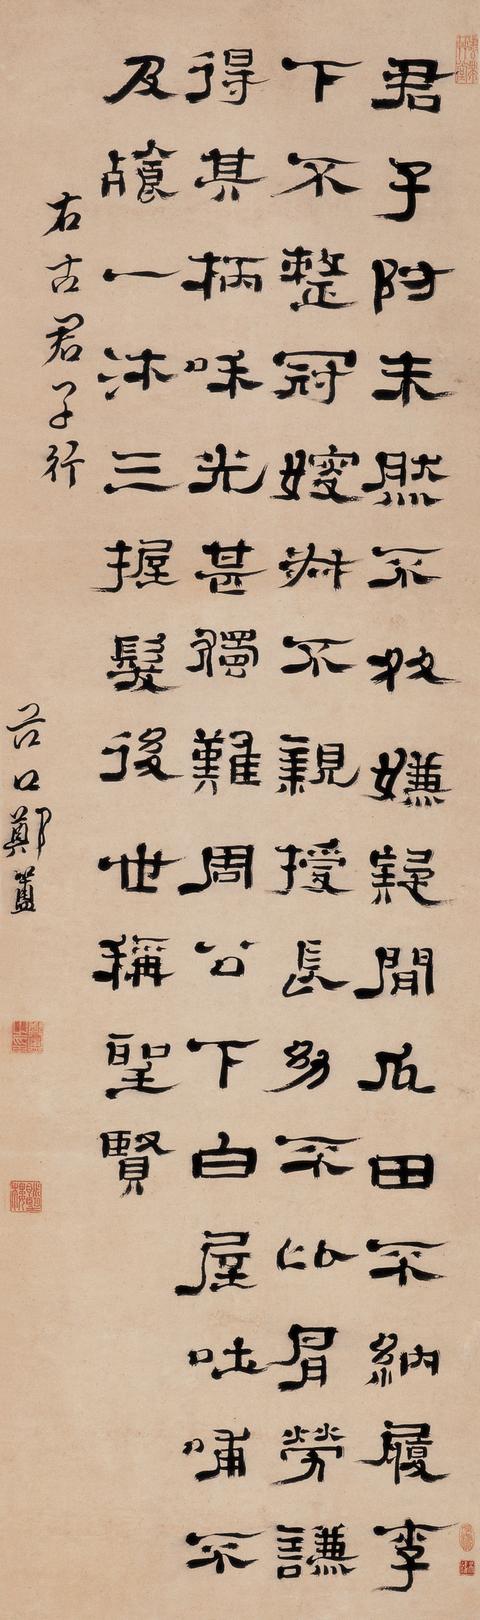 君子防未然不處嫌疑間瓜田不納履李
下不整冠嫂叔不親授長幼不比肩勞謙
得其柄咊光甚獨難周公下白屋吐哺不
及餐一沐三握髮後世稱聖賢
右古君子行
谷口鄭簠